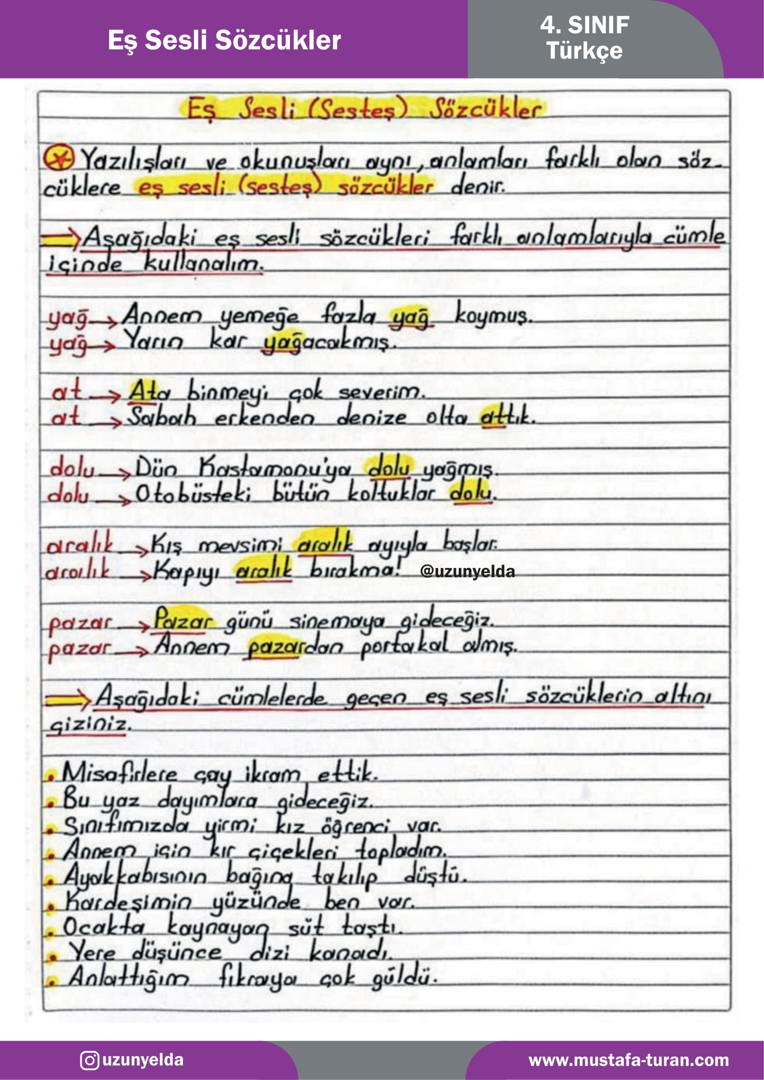 Eş Sesli Sözcükler
4. SINIF
Türkçe
Eş Sesli (Sesteş) Sözcükler
Yazılışları ve okunuşları aynı, anlamları farklı olan söz-
cüklere eş sesli (sesteş) sözcükler denir.
Aşağıdaki eş sesli sözcükleri farklı anlamlarıyla cümle
içinde kullanalım.
yağ → Annem yemeğe fazla yağ koymuş.
yağ → Yarın kar yağacakmış.
at → Ata binmeyi çok severim.
at → Sabah erkenden denize olta attık.
dolu → Dün Kastamonu'ya dolu yağmış.
dolu → Otobüsteki bütün koltuklar dolu.
aralık → Kış mevsimi aralık ayıyla başlar.
aralık → Kapıyı aralık bırakma! @uzunyelda
pazar → Pazar günü sinemaya gideceğiz.
pazar → Annem pazardan portakal almış.
Aşağıdaki cümlelerde geçen eş sesli sözcüklerin altını
çiziniz.
• Misafirlere çay ikram ettik.
• Bu yaz dayımlara gideceğiz.
• Sınıfımızda yirmi kız öğrenci var.
• Annem için kır çiçekleri topladım.
• Ayakkabısının bağına takılıp düştü.
• Kardeşimin yüzünde ben var.
• Ocakta kaynayan süt taştı.
• Yere düşünce dizi kanadı.
• Anlattığım fıkraya çok güldü.
uzunyelda
www.mustafa-turan.com